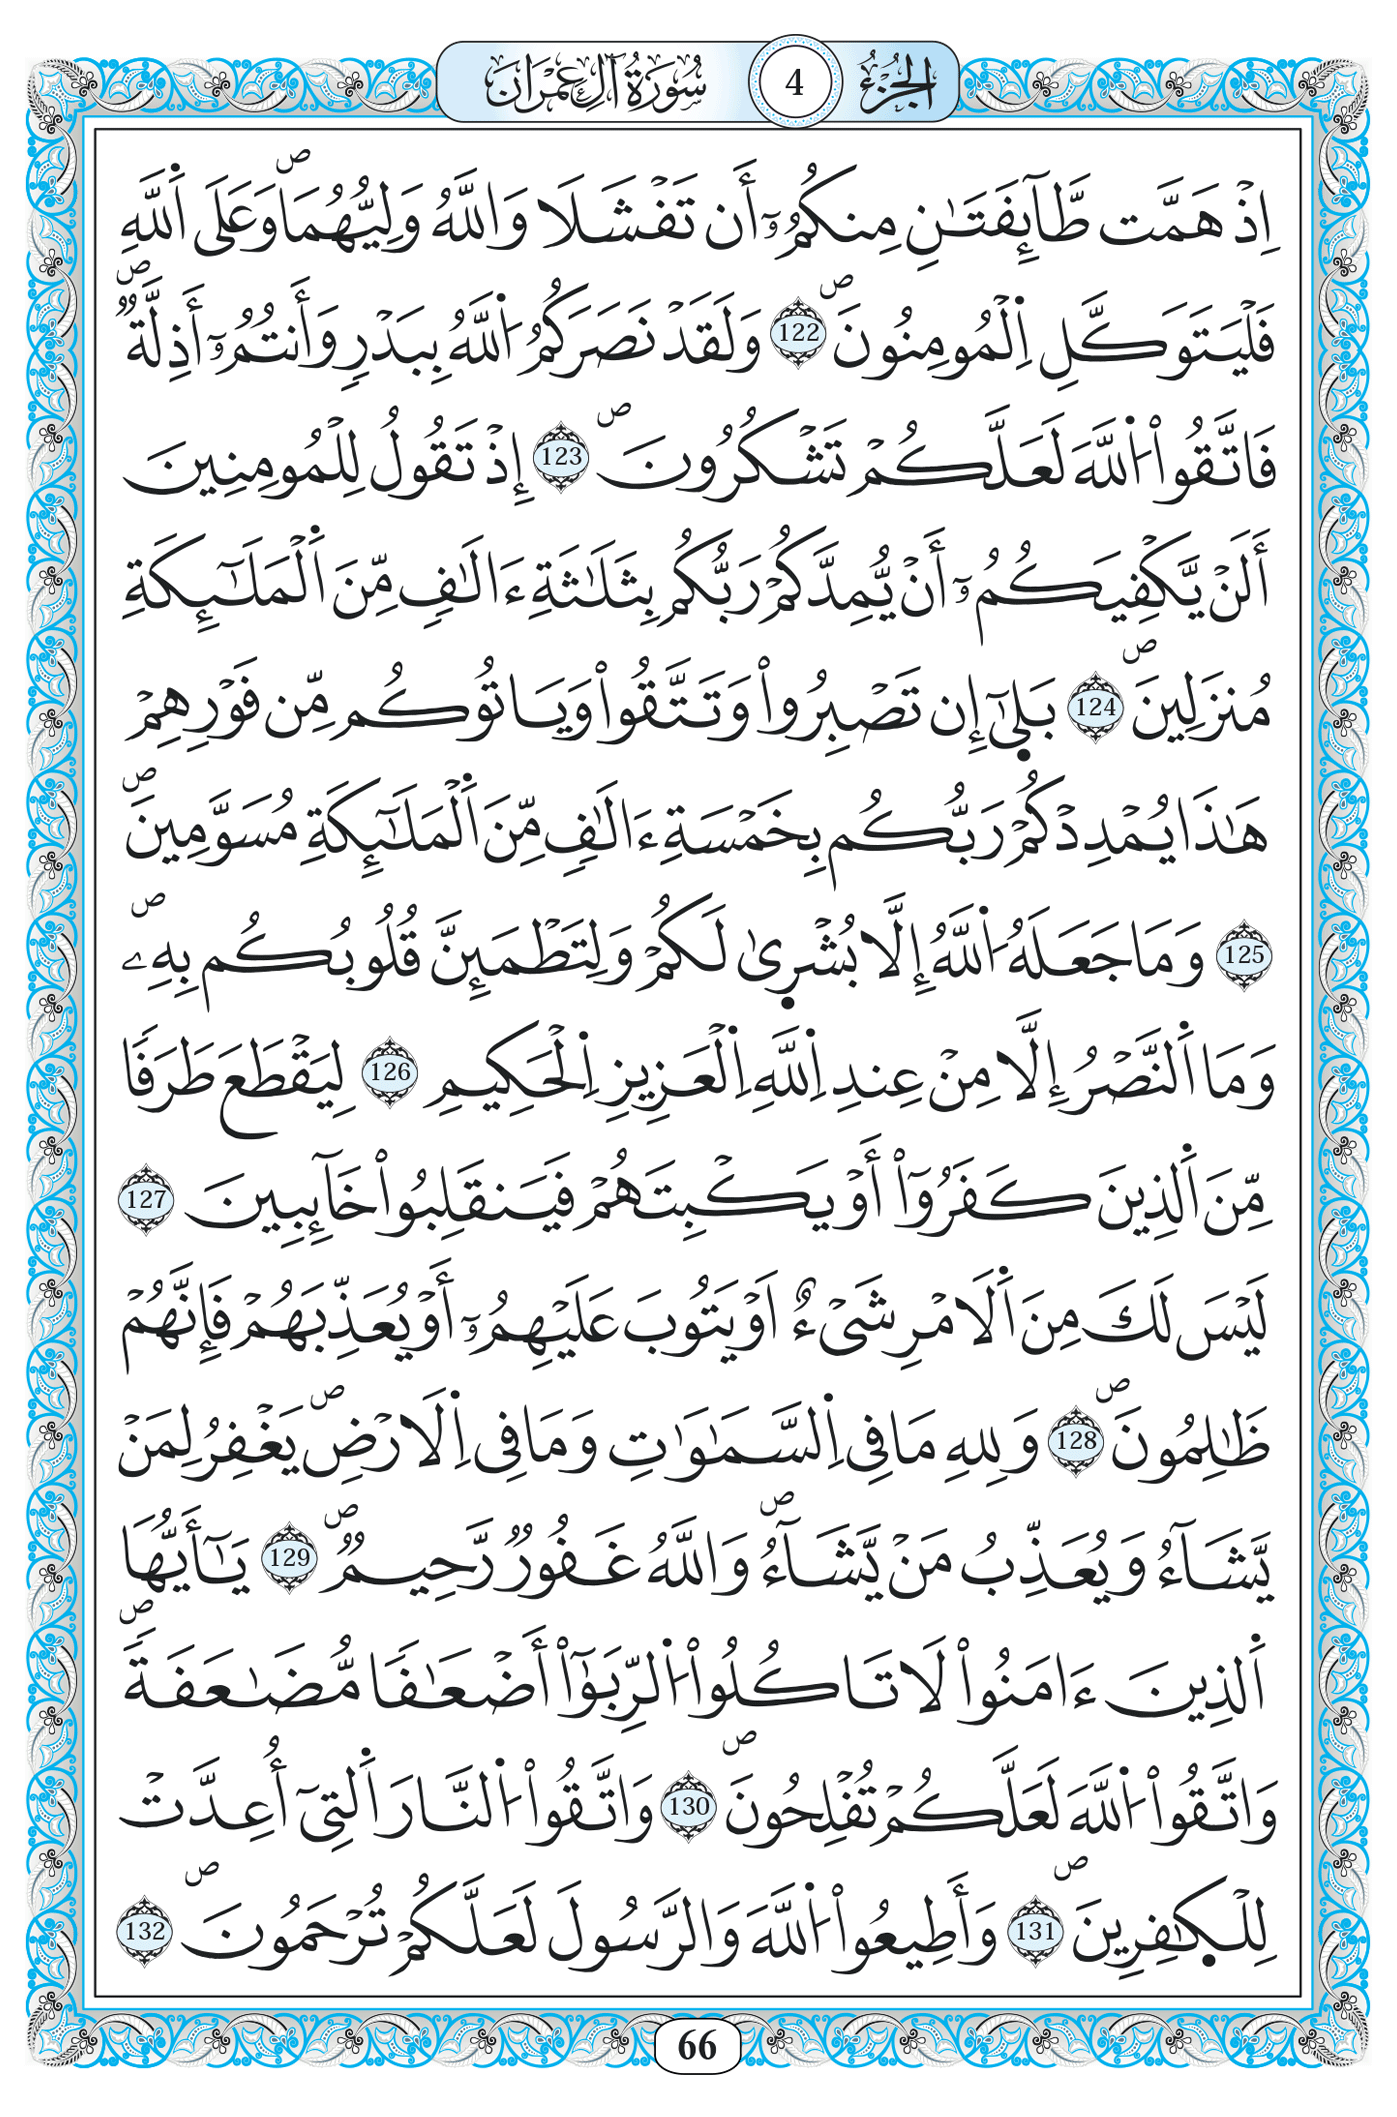 الجزء 4 سورة آل عمران
اِذْ هَمَّت طَّآئِفَتَٰنِ مِنكُمُۥٓ أَن تَفْشَلَا وَاللَّهُ وَلِيُّهُمَاۖ وَعَلَى اَ۬للَّهِ
فَلْيَتَوَكَّلِ اِ۬لْمُومِنُونَۖ 122 وَلَقَدْ نَصَرَكُمُ اُ۬للَّهُ بِبَدْرٍ وَأَنتُمُۥٓ أَذِلَّةٞۖ
فَاتَّقُواْ اُ۬للَّهَ لَعَلَّكُمْ تَشْكُرُونَۖ 123 إِذْ تَقُولُ لِلْمُومِنِينَ
أَلَنْ يَّكْفِيَكُمُۥٓ أَنْ يُّمِدَّكُمْ رَبُّكُم بِثَلَٰثَةِ ءَالَٰفٖ مِّنَ اَ۬لْمَلَٰٓئِكَةِ
مُنزَلِينَۖ 124 بَل۪يٰٓ إِن تَصْبِرُواْ وَتَتَّقُواْ وَيَاتُوكُم مِّن فَوْرِهِمْ
هَٰذَا يُمْدِدْكُمْ رَبُّكُم بِخَمْسَةِ ءَالَٰفٖ مِّنَ اَ۬لْمَلَٰٓئِكَةِ مُسَوَّمِينَۖ
125 وَمَا جَعَلَهُ اُ۬للَّهُ إِلَّا بُشْر۪يٰ لَكُمْ وَلِتَطْمَئِنَّ قُلُوبُكُم بِهِۦۖ
وَمَا اَ۬لنَّصْرُ إِلَّا مِنْ عِندِ اِ۬للَّهِ اِ۬لْعَزِيزِ اِ۬لْحَكِيمِ 126 لِيَقْطَعَ طَرَفٗا
مِّنَ اَ۬لذِينَ كَفَرُوٓاْ أَوْ يَكْبِتَهُمْ فَيَنقَلِبُواْ خَآئِبِينَ 127
لَيْسَ لَكَ مِنَ اَ۬لَامْرِ شَےْءٌ اَوْ يَتُوبَ عَلَيْهِمُۥٓ أَوْ يُعَذِّبَهُمْ فَإِنَّهُمْ
ظَٰلِمُونَۖ 128 وَلِلهِ مَا فِے اِ۬لسَّمَٰوَٰتِ وَمَا فِے اِ۬لَارْضِۖ يَغْفِرُ لِمَنْ
يَّشَآءُ وَيُعَذِّبُ مَنْ يَّشَآءُۖ وَاللَّهُ غَفُورٞ رَّحِيمٞۖ 129 يَٰٓأَيُّهَا
اَ۬لذِينَ ءَامَنُواْ لَا تَاكُلُواْ اُ۬لرِّبَوٰٓاْ أَضْعَٰفٗا مُّضَٰعَفَةٗۖ
وَاتَّقُواْ اُ۬للَّهَ لَعَلَّكُمْ تُفْلِحُونَۖ 130 وَاتَّقُواْ اُ۬لنَّارَ اَ۬لتِےٓ أُعِدَّتْ
لِلْكٰ۪فِرِينَۖ 131 وَأَطِيعُواْ اُ۬للَّهَ وَالرَّسُولَ لَعَلَّكُمْ تُرْحَمُونَۖ 132
66